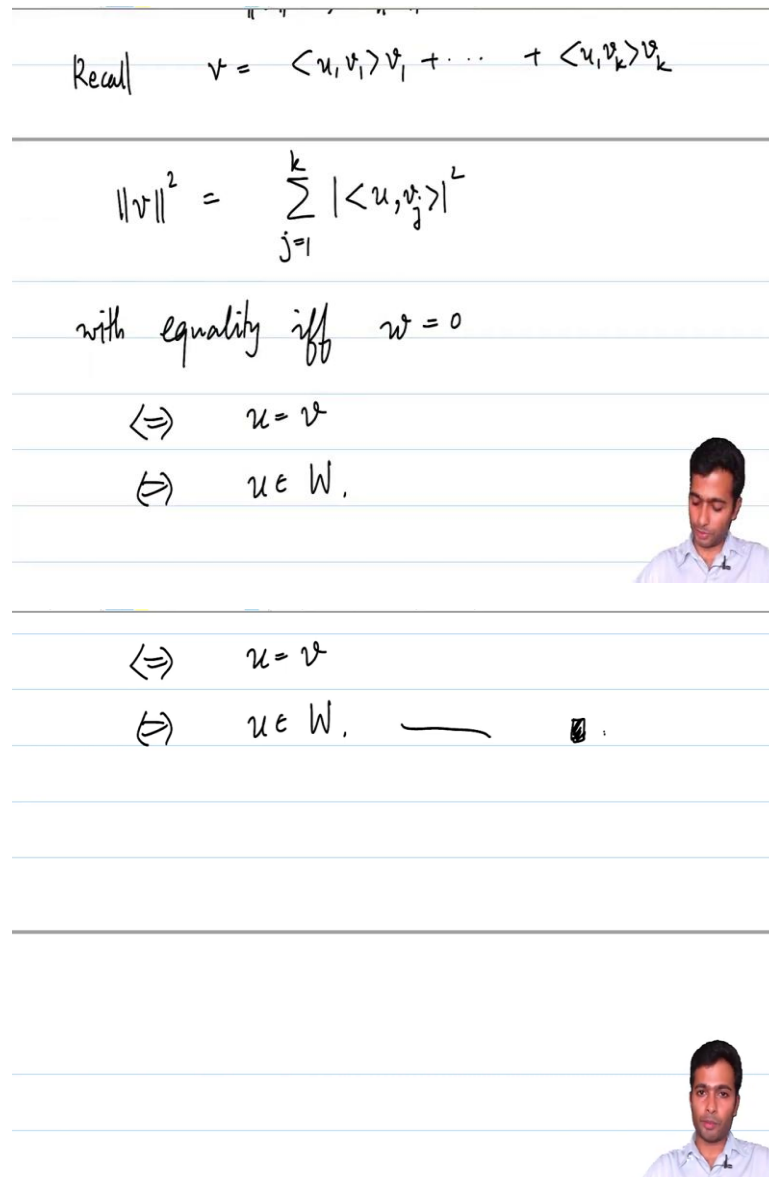 Recall v = <u, v₁> v₁ + ··· + <u, v_k> v_k
||v||² = Σ_{j=1}^{k} |<u, v_j>|²
with equality iff w = 0
<=> u = v
<=> u ∈ W.
<=> u = v
<=> u ∈ W.